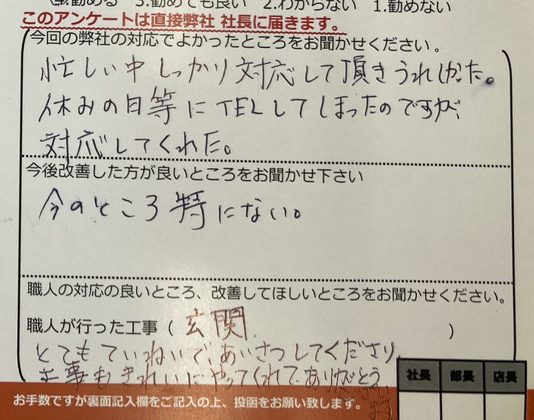 勧める 3.勧めても良い 2.わからない 1.勧めない
このアンケートは直接弊社 社長に届きます。
今回の弊社の対応でよかったところをお聞かせください。
忙しい中しっかり対応して頂きうれしかった。
休みの日等にTELしてしまったのですが、
対応してくれた。
今後改善した方が良いところをお聞かせ下さい
今のところ特にない。
職人の対応の良いところ、改善してほしいところをお聞かせください。
職人が行った工事 ( 玄関 )
とてもていねいであいさつしてくださり
工事もきれいにやってくれてありがとう
社長 部長 店長
お手数ですが裏面記入欄をご記入の上、投函をお願い致します。